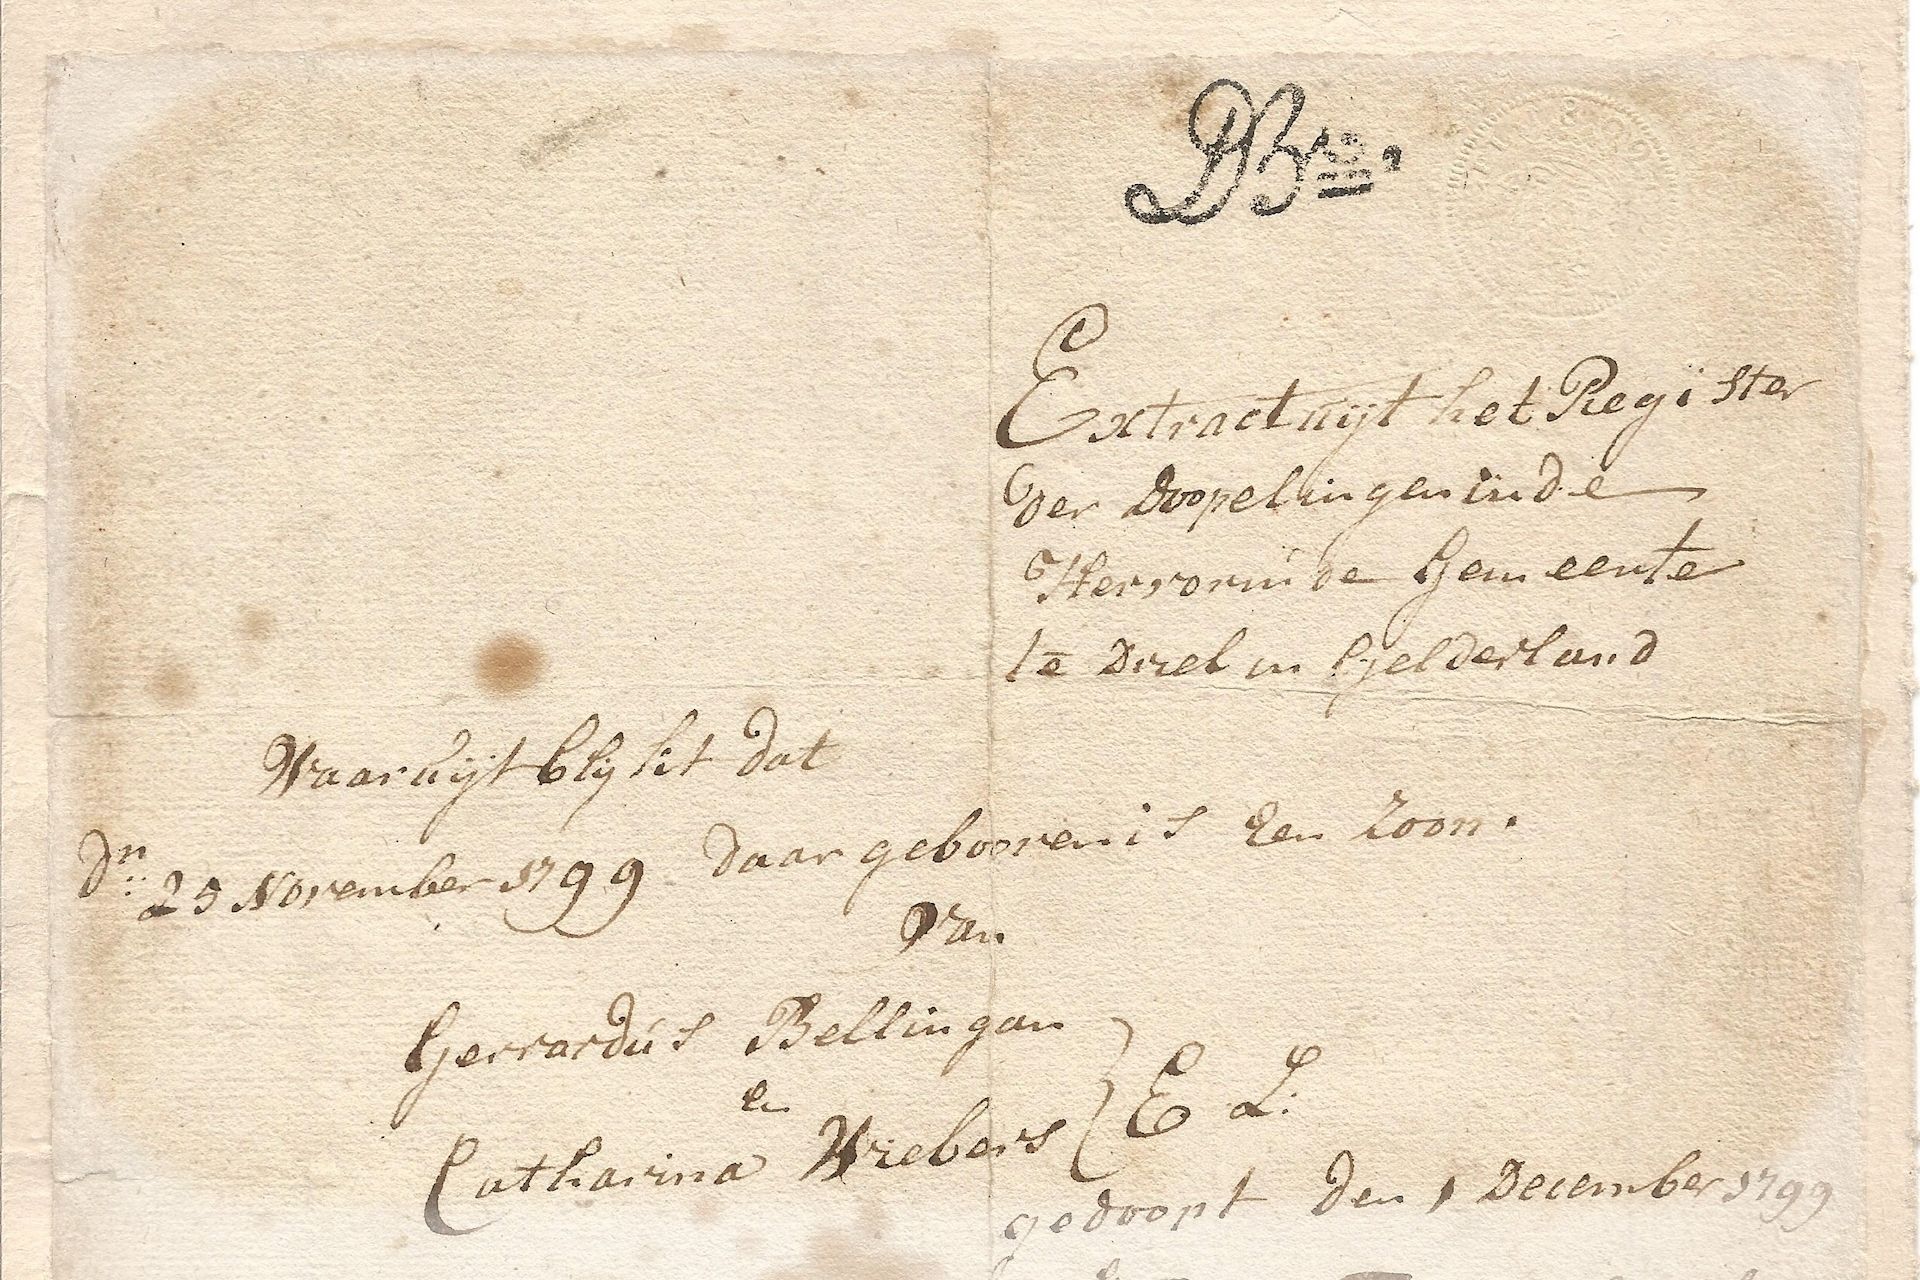 DBrs.
Extract uijt het Register
der doopelingen in de
Hervormde Gemeente
te Driel in Gelderland
Waar uijt blijkt dat
Dn. 25 November 1799 daar gebooren is Een Zoon.
van
Gerrardús Bellingan
en
Catharina Wrebers } E L:
gedoopt den 1 December 1799